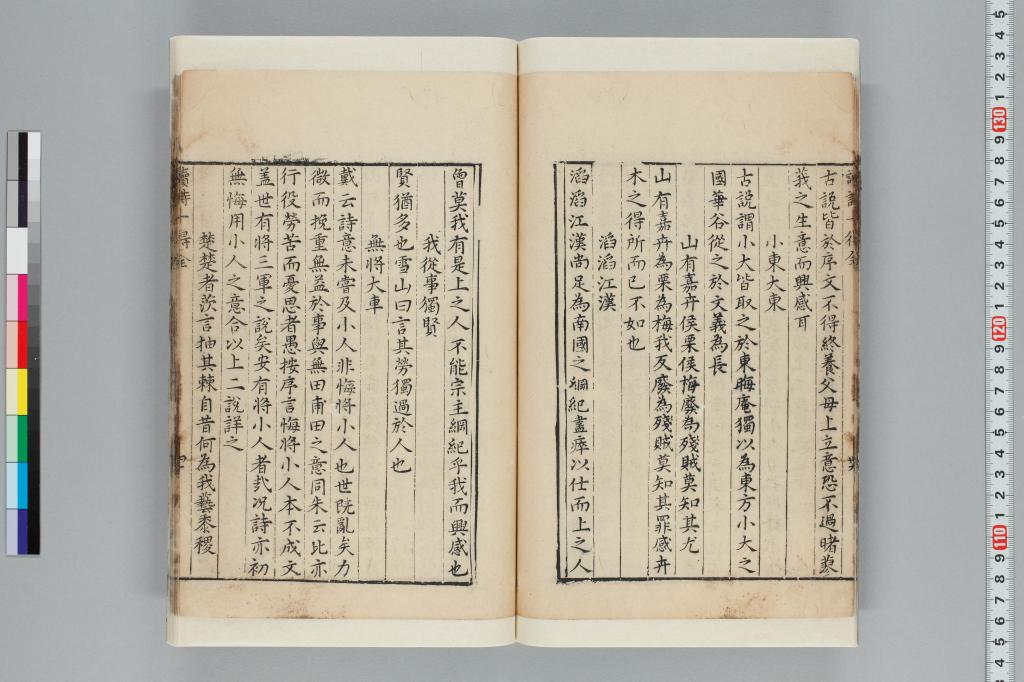 古說皆於序文不得終養父母上立意恐不過睹蓼
莪之生意而興感耳
小東大東
古說謂小大皆取之於東晦庵獨以為東方小大之
國華谷從之於文義為長
山有嘉卉侯栗侯梅廢為殘賊莫知其尤
山有嘉卉為栗為梅我反廢為殘賊莫知其罪感卉
木之得所而已不如也
滔滔江漢
滔滔江漢尚足為南國之綱紀盡瘁以仕而上之人
曾莫我有是上之人不能宗主綱紀乎我而興感也
我從事獨賢
賢猶多也雪山曰言其勞獨過於人也
無將大車
戴云詩意未嘗及小人非悔將小人也世既亂矣力
微而挽重無益於事與無田甫田之意同朱云比亦
行役勞苦而憂思者愚按序言悔將小人本不成文
盖世有將三軍之說矣安有將小人者哉况詩亦初
無悔用小人之意合以上二說詳之
楚楚者茨言抽其棘自昔何為我蓺黍稷